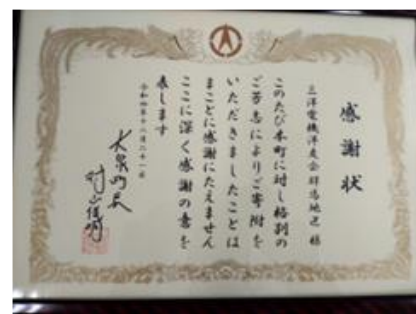 感謝状
三洋電機洋友会群馬地区 様
このたび本町に対し格別の
ご芳志によりご寄附を
いただきましたことは
まことに感謝にたえません
ここに深く感謝の意を
表します
令和四年十二月二十一日
大泉町長
村山俊明